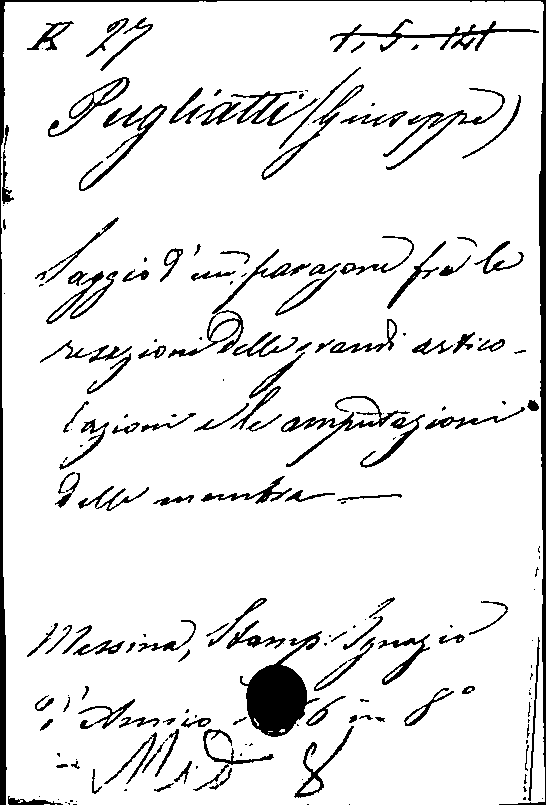 R 27 1. 5. 141
Pugliatti (Giuseppe)
Saggio d'un paragone fra le
resezioni delle grandi artico-
lazioni e le amputazioni
delle membra —
Messina, Stamp. Ignazio
D'Amico 6 in 8°
in Mis 8